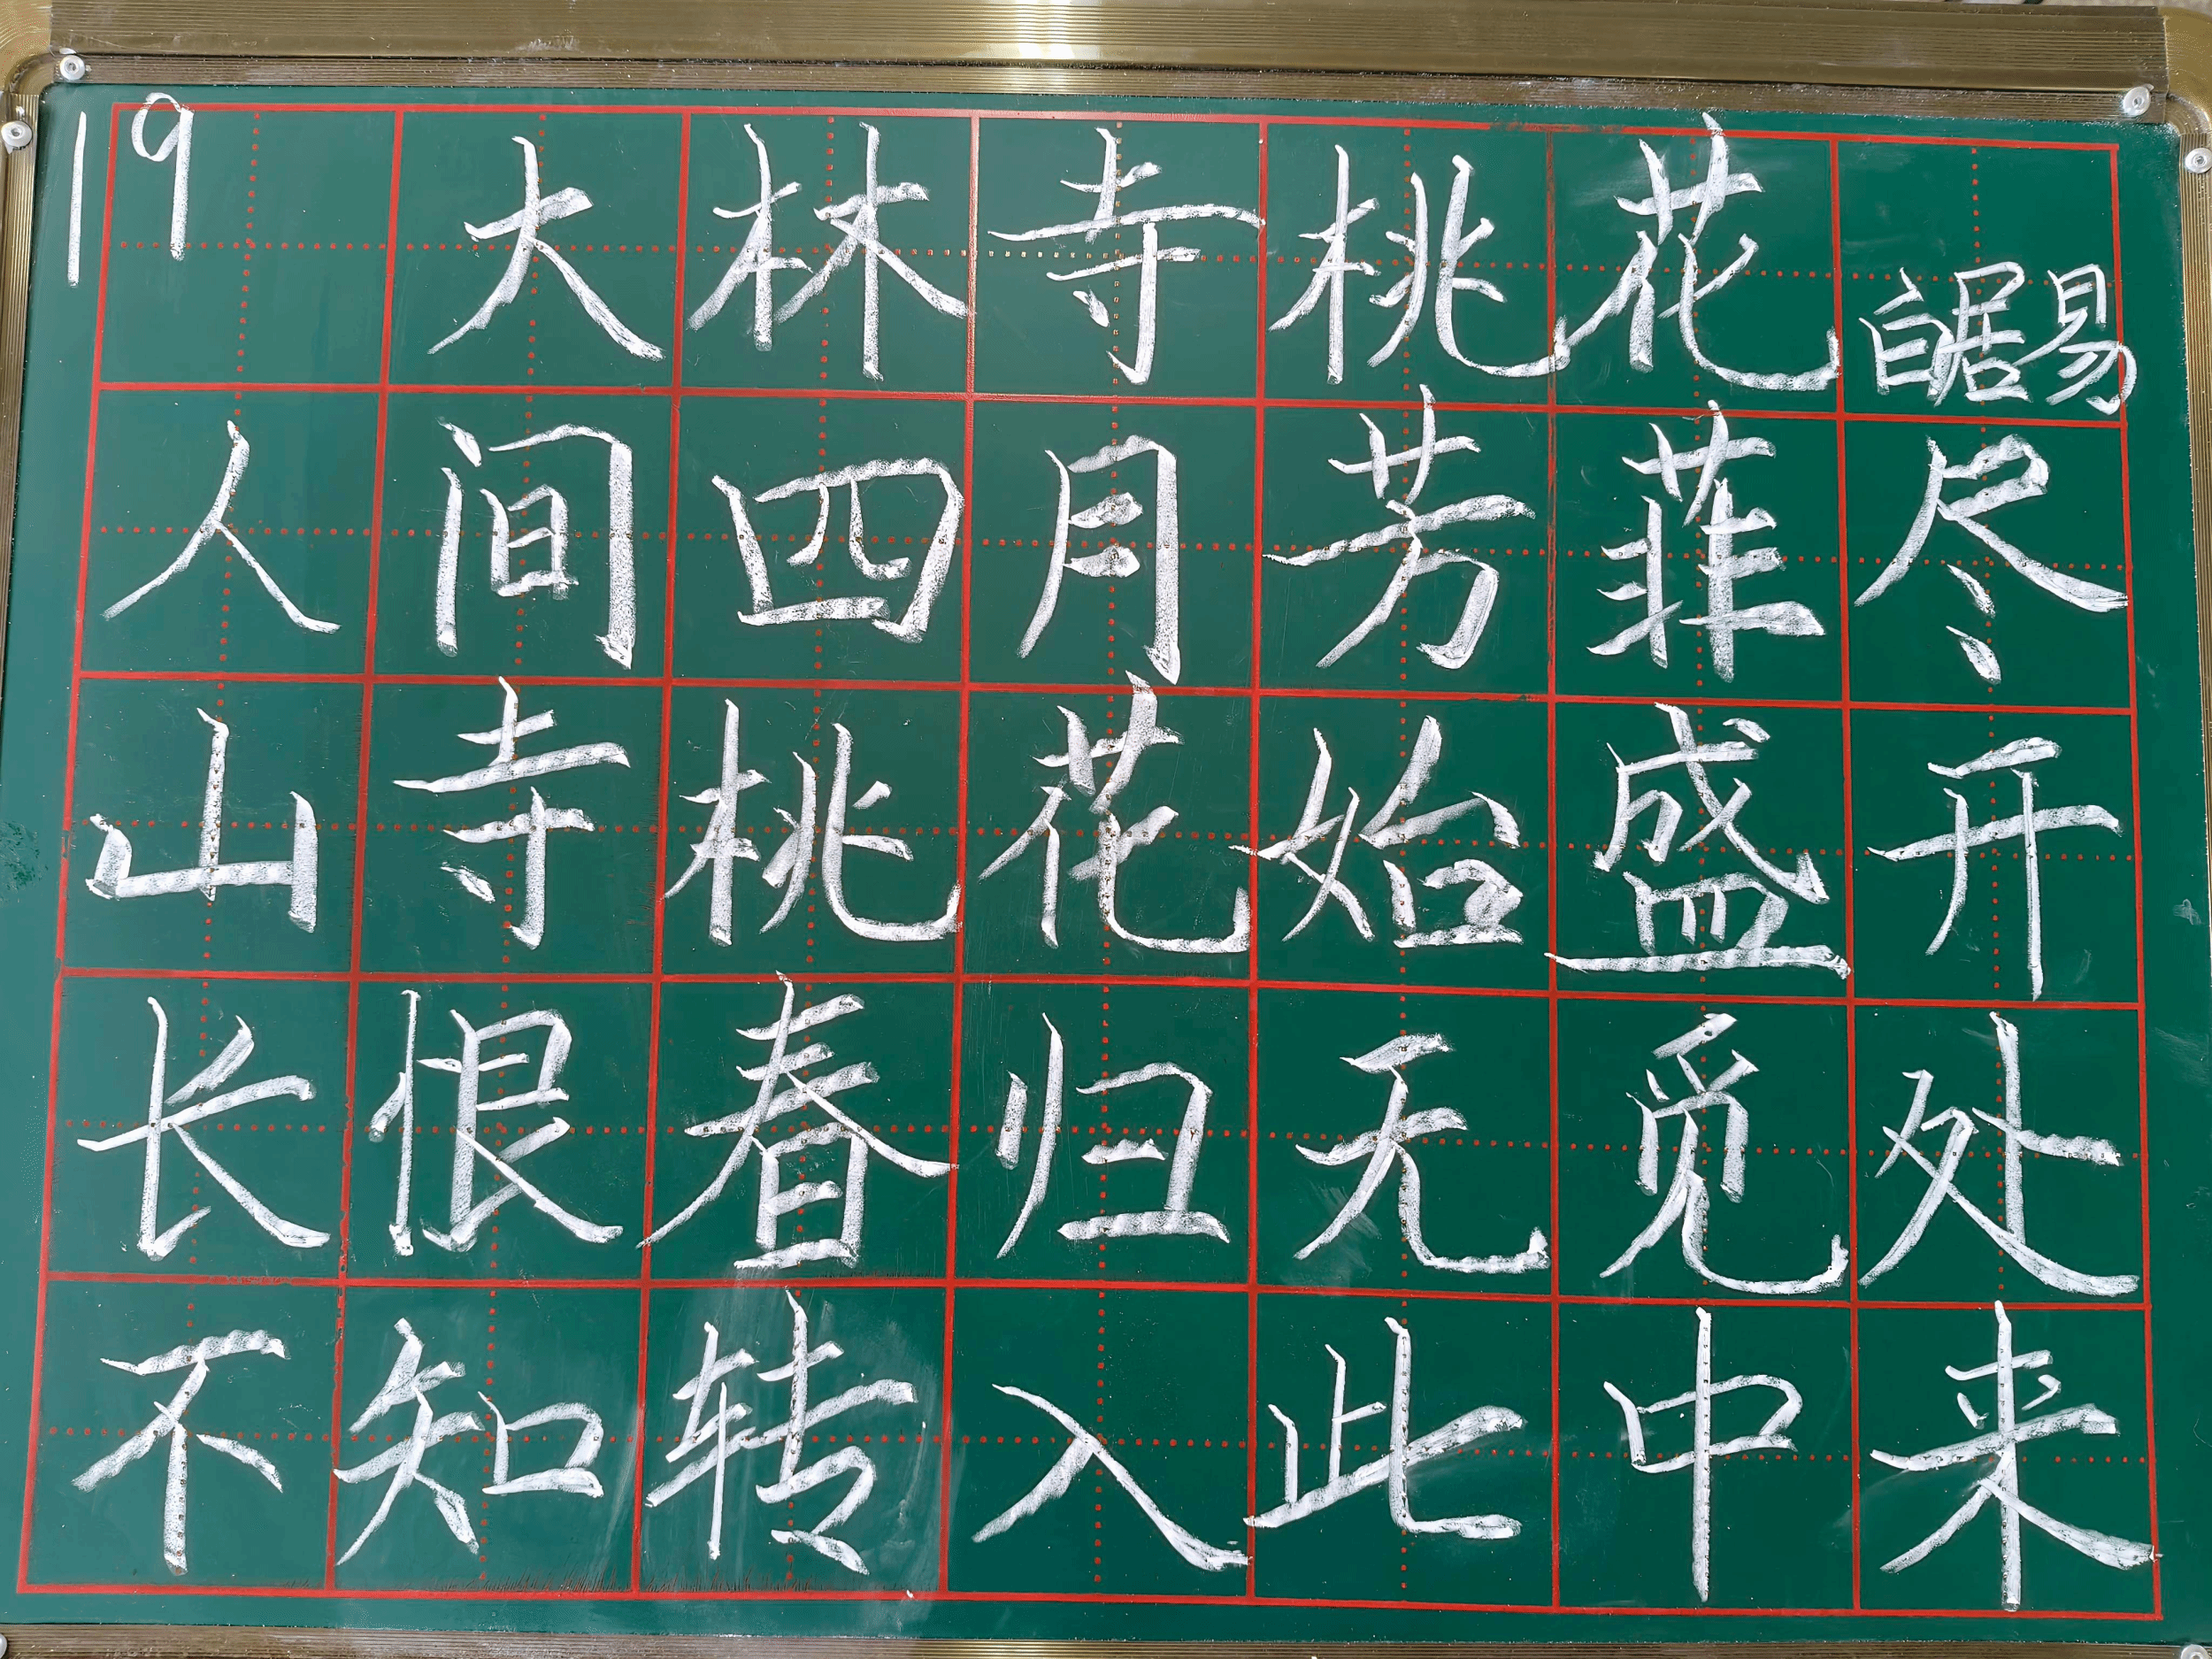 19 大林寺桃花 白居易
人间四月芳菲尽
山寺桃花始盛开
长恨春归无觅处
不知转入此中来